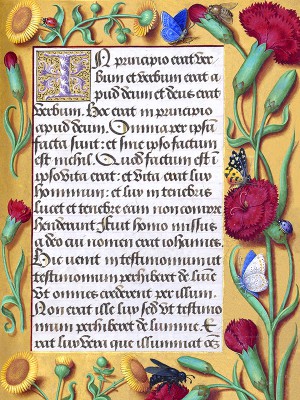 In principio erat ver
bum et verbum erat a
pud deum et deus erat
verbum. Hoc erat in principio
apud deum. Omnia per ipsũ
facta sunt: et sine ipso factum
est nichil. Quod factum est ĩ
ipso vita erat: et vita erat lux
hominum: et lux in tenebris
lucet et tenebre eam non compre
henderunt Fuit homo missus
a deo cui nomen erat iohannes.
Hic venit in testimonium ut
testimonium perhiberet de lumĩe
vt omnes crederent per illum.
Non erat ille lux sed vt testimo
nium perhiberet de lumine. E
rat lux vera que illuminat oẽz